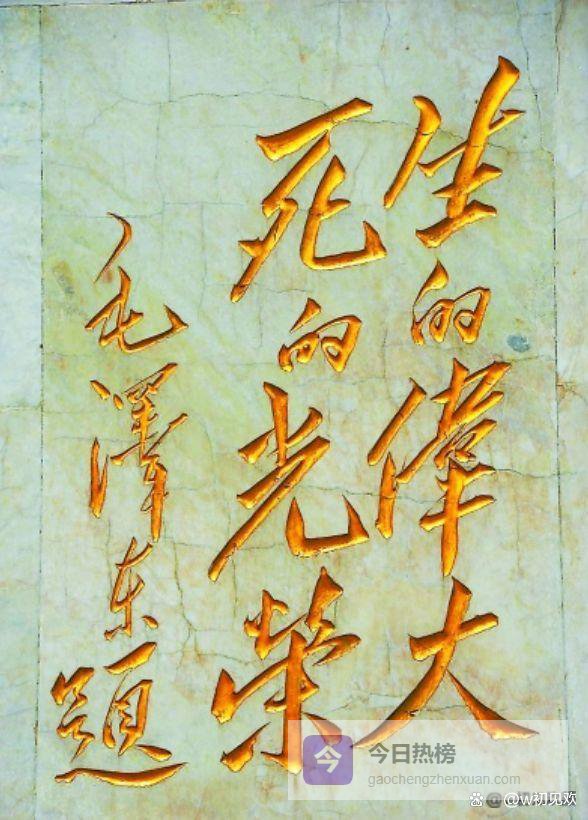 生的偉大
死的光榮
毛澤东題
今 今日热榜
gaochengzhenxuan.com
@w初见欢